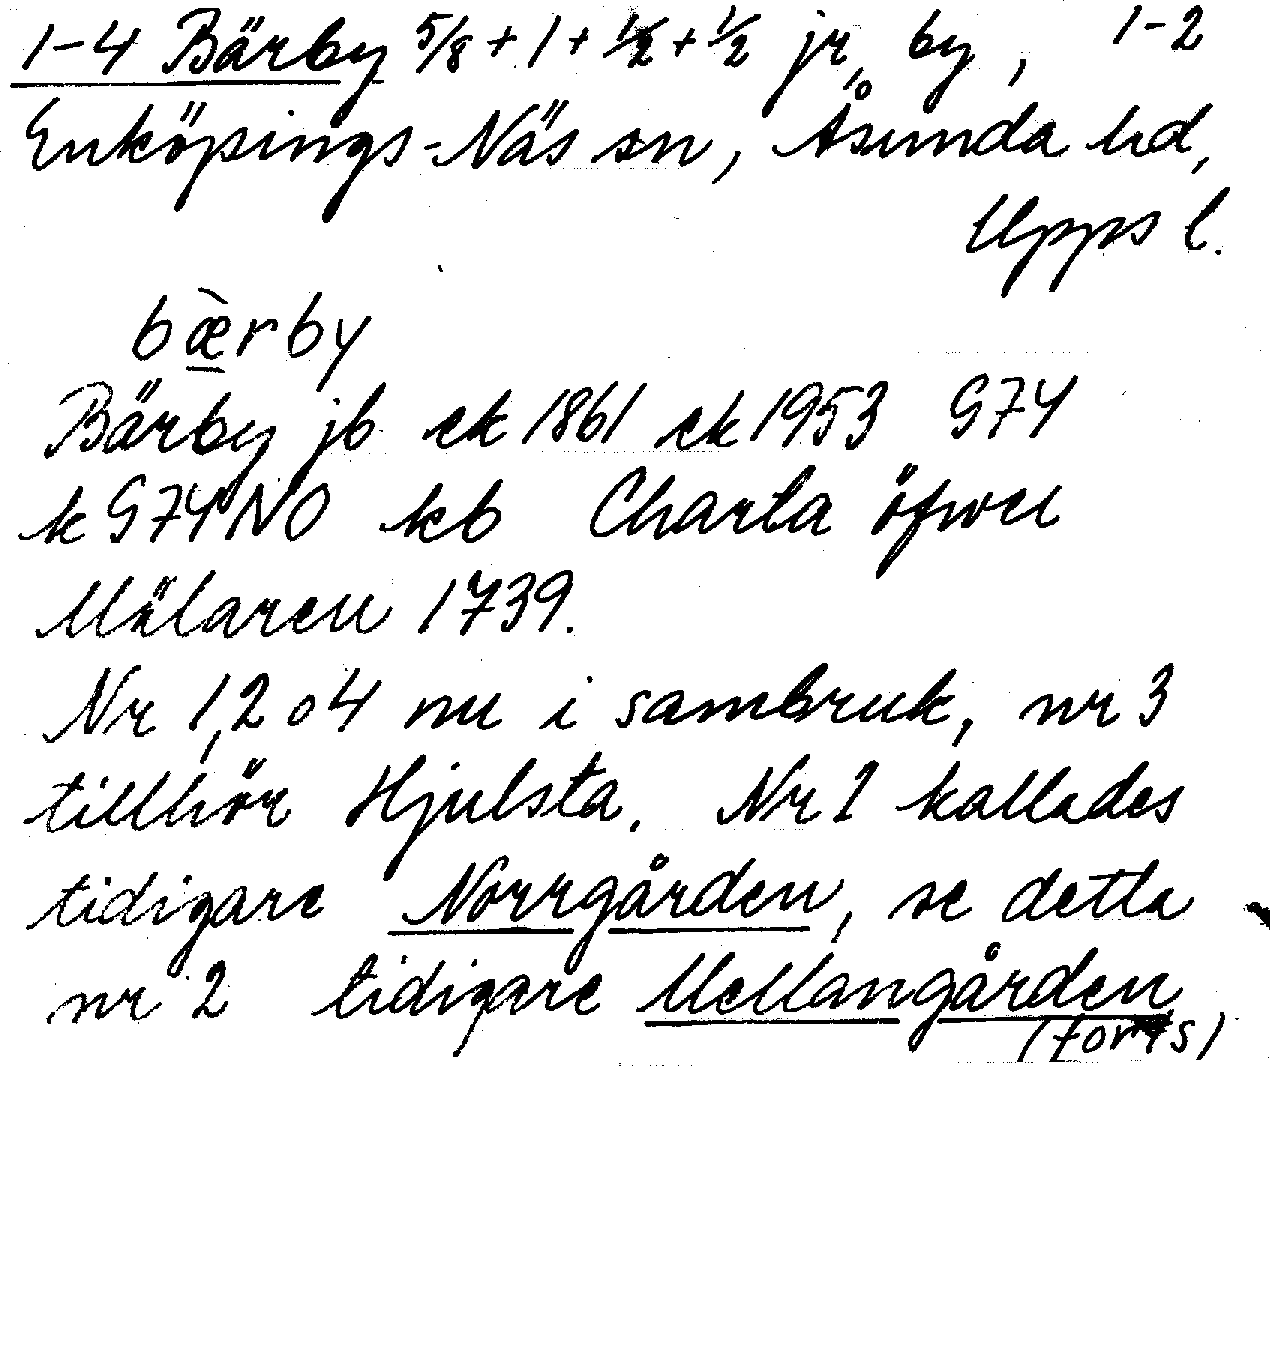 1-4 Bärby 5/8+1+1/2+1/2 jr, by, 1-2
Enköpings-Näs sn, Åsunda hd,
Upps l.
bæ̀rby
Bärby jb ek 1861 ek 1953 G74
k G74NO kb Charta öfwer
Mälaren 1739.
Nr 1, 2 o 4 nu i sambruk, nr 3
tillhör Hjulsta. Nr 1 kallades
tidigare Norrgården, se detta
nr 2 tidigare Mellangården
(forts)